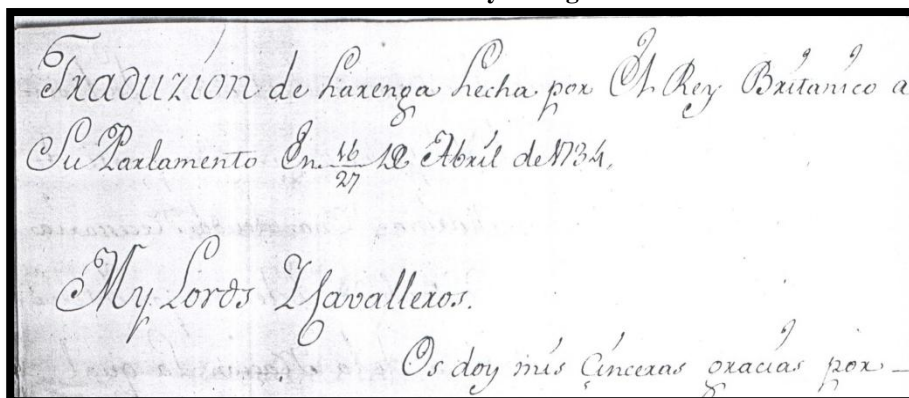 Traduzion de harenga hecha por El Rey Britanico a
Su Parlamento En 16/27 de Abril de 1734.
My Lords Y Cavalleros.
Os doy mis Cinceras gracias por –